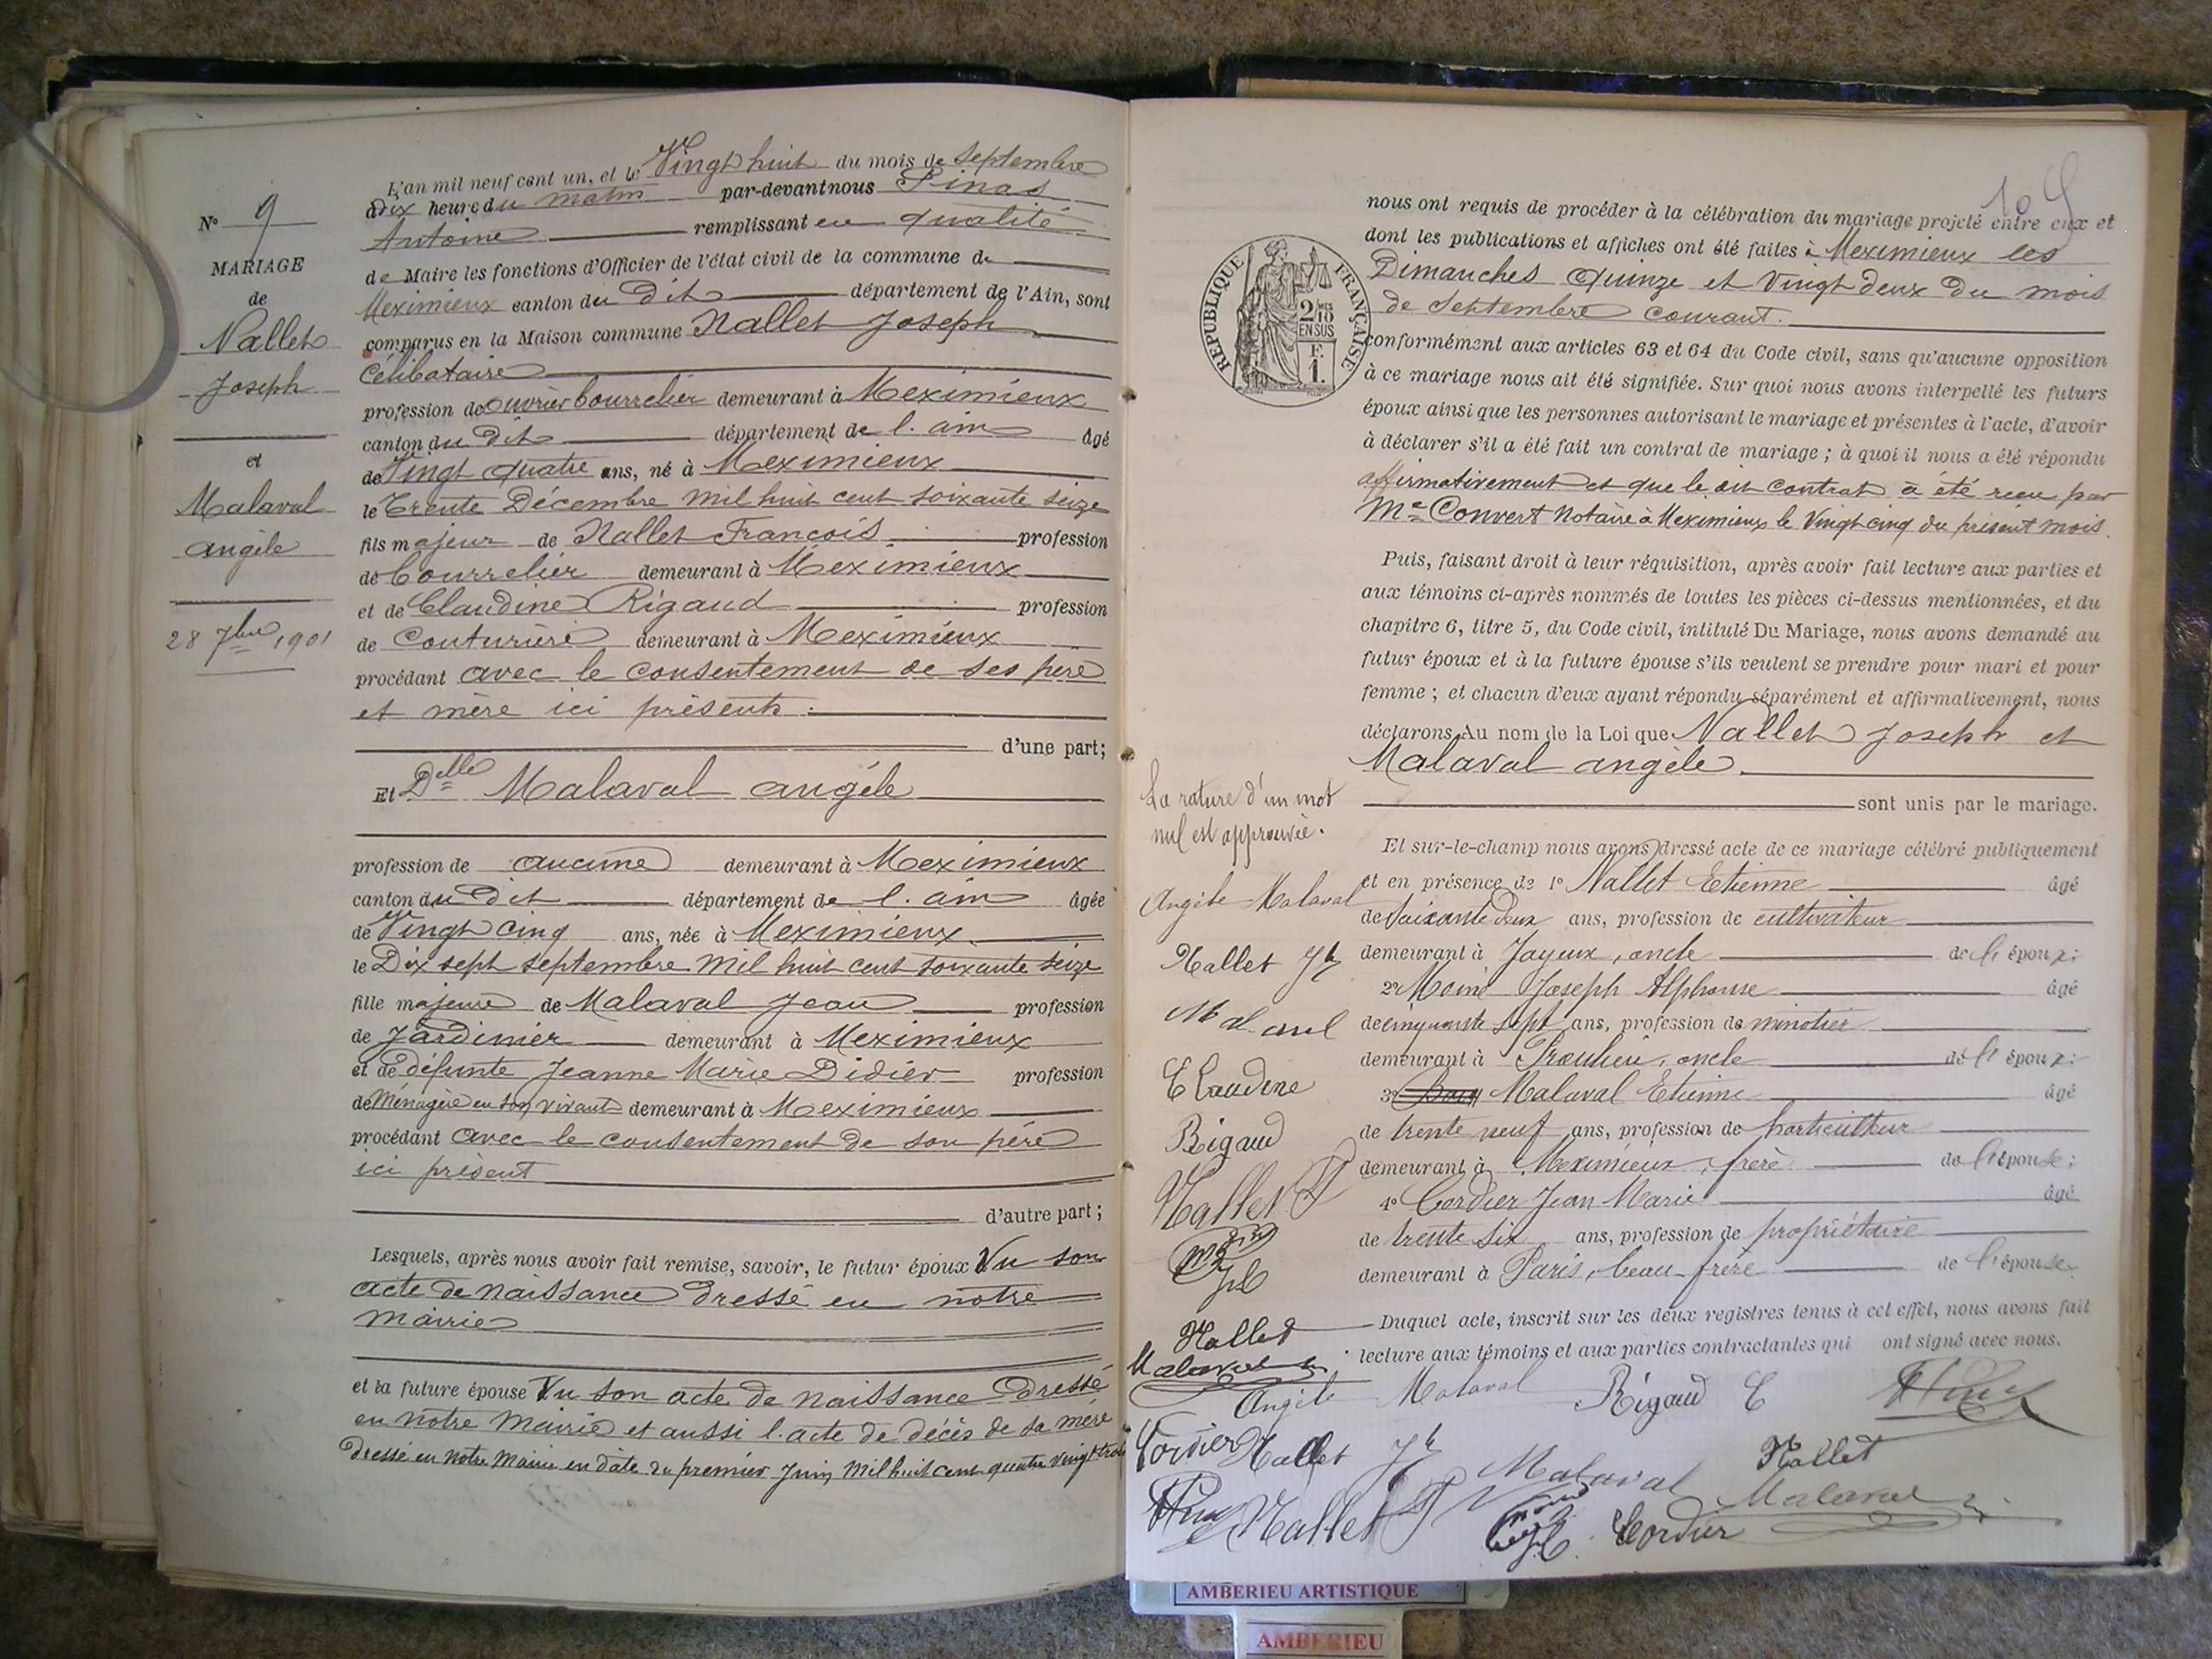 N° 9
MARIAGE
de
Nallet
Joseph
et
Malaval
angèle
28 7bre 1901
L'an mil neuf cent un, et le Vingt huit du mois de Septembre
à dix heure du matin par-devant nous Pinas
Antoine remplissant en qualité
de Maire les fonctions d'Officier de l'état civil de la commune de
Meximieux canton du Dit département de l'Ain, sont
comparus en la Maison commune Nallet Joseph
Célibataire
profession de ouvrier bourrelier demeurant à Meximieux
canton du Dit département de l'ain âgé
de Vingt quatre ans, né à Meximieux
le Trente Décembre mil huit cent soixante seize
fils majeur de Nallet François profession
de Bourrelier demeurant à Meximieux
et de Claudine Rigaud profession
de Couturière demeurant à Meximieux
procédant avec le consentement de ses père
et mère ici présents.
d'une part;
Et Delle Malaval angèle
profession de aucune demeurant à Meximieux
canton du Dit département de l'ain âgée
de Vingt cinq ans, née à Meximieux
le Dix sept septembre mil huit cent soixante seize
fille majeure de Malaval Jean profession
de Jardinier demeurant à Meximieux
et de défunte Jeanne Marie Didier profession
de Ménagère en son vivant demeurant à Meximieux
procédant avec le consentement de son père
ici présent
d'autre part;
Lesquels, après nous avoir fait remise, savoir, le futur époux Vu son
acte de naissance dressé en notre
mairie
et la future épouse Vu son acte de naissance dressé
en notre mairie et aussi l'acte de décès de sa mère
dressé en notre mairie en date du premier Juin mil huit cent quatre vingt trois
109
RÉPUBLIQUE FRANÇAISE
2/10
EN SUS
F.
1.
nous ont requis de procéder à la célébration du mariage projeté entre eux et
dont les publications et affiches ont été faites à Meximieux les
Dimanches quinze et vingt deux du mois
de Septembre courant.
conformément aux articles 63 et 64 du Code civil, sans qu'aucune opposition
à ce mariage nous ait été signifiée. Sur quoi nous avons interpellé les futurs
époux ainsi que les personnes autorisant le mariage et présentes à l'acte, d'avoir
à déclarer s'il a été fait un contrat de mariage ; à quoi il nous a été répondu
affirmativement et que le dit contrat à été reçu par
Me Convert Notaire à Meximieux le Vingt cinq du présent mois.
Puis, faisant droit à leur réquisition, après avoir fait lecture aux parties et
aux témoins ci-après nommés de toutes les pièces ci-dessus mentionnées, et du
chapitre 6, titre 5, du Code civil, intitulé Du Mariage, nous avons demandé au
futur époux et à la future épouse s'ils veulent se prendre pour mari et pour
femme ; et chacun d'eux ayant répondu séparément et affirmativement, nous
déclarons Au nom de la Loi que Nallet Joseph et
Malaval angèle.
sont unis par le mariage.
Et sur-le-champ nous avons dressé acte de ce mariage célébré publiquement
et en présence de 1° Nallet Etienne âgé
de soixante deux ans, profession de cultivateur
demeurant à Jayeux, oncle de l'époux;
2° Moine Joseph Alphonse âgé
de cinquante sept ans, profession de minotier
demeurant à oncle de l'époux;
3° Malaval Etienne âgé
de trente neuf ans, profession de horticulteur
demeurant à Meximieux, frère de l'épouse;
4° Cordier Jean Marie âgé
de trente six ans, profession de propriétaire
demeurant à Paris, beau-frère de l'épouse.
Duquel acte, inscrit sur les deux registres tenus à cet effet, nous avons fait
lecture aux témoins et aux parties contractantes qui ont signé avec nous.
La rature d'un mot
nul est approuvée.
Angèle Malaval
Nallet Jh
Malaval
Claudine
Rigaud
Nallet F
Nallet
Malaval
Angèle Malaval Rigaud C
Cordier Nallet Jh Malaval Nallet
Nallet F Cordier Malaval
AMBERIEU ARTISTIQUE
AMBERIEU